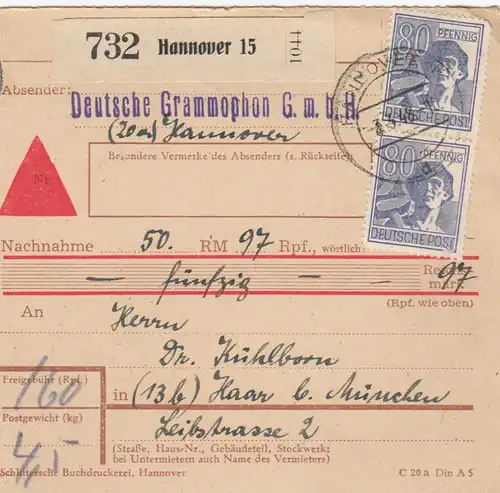 732 Hannover 15 1044
80 PFENNIG
DEUTSCHE POST
HANNOVER
Absender:
Deutsche Grammophon G.m.b.H.
(20a) Hannover
Besondere Vermerke des Absenders (s. Rückseite)
80 PFENNIG
DEUTSCHE POST
Nr
Nachnahme 50. RM 97 Rpf., wörtlich:
— fünfzig — 97
mark
(Rpf. wie oben)
An Herrn
Dr. Kühlborn
Freigebühr (Rpf.)
160
in (13b) Haar b. München
Postgewicht (kg)
Leibstrasse 2
45
(Straße, Haus-Nr., Gebäudeteil, Stockwerk;
bei Untermietern auch Name des Vermieters)
Schlütersche Buchdruckerei, Hannover C 20 a Din A 5